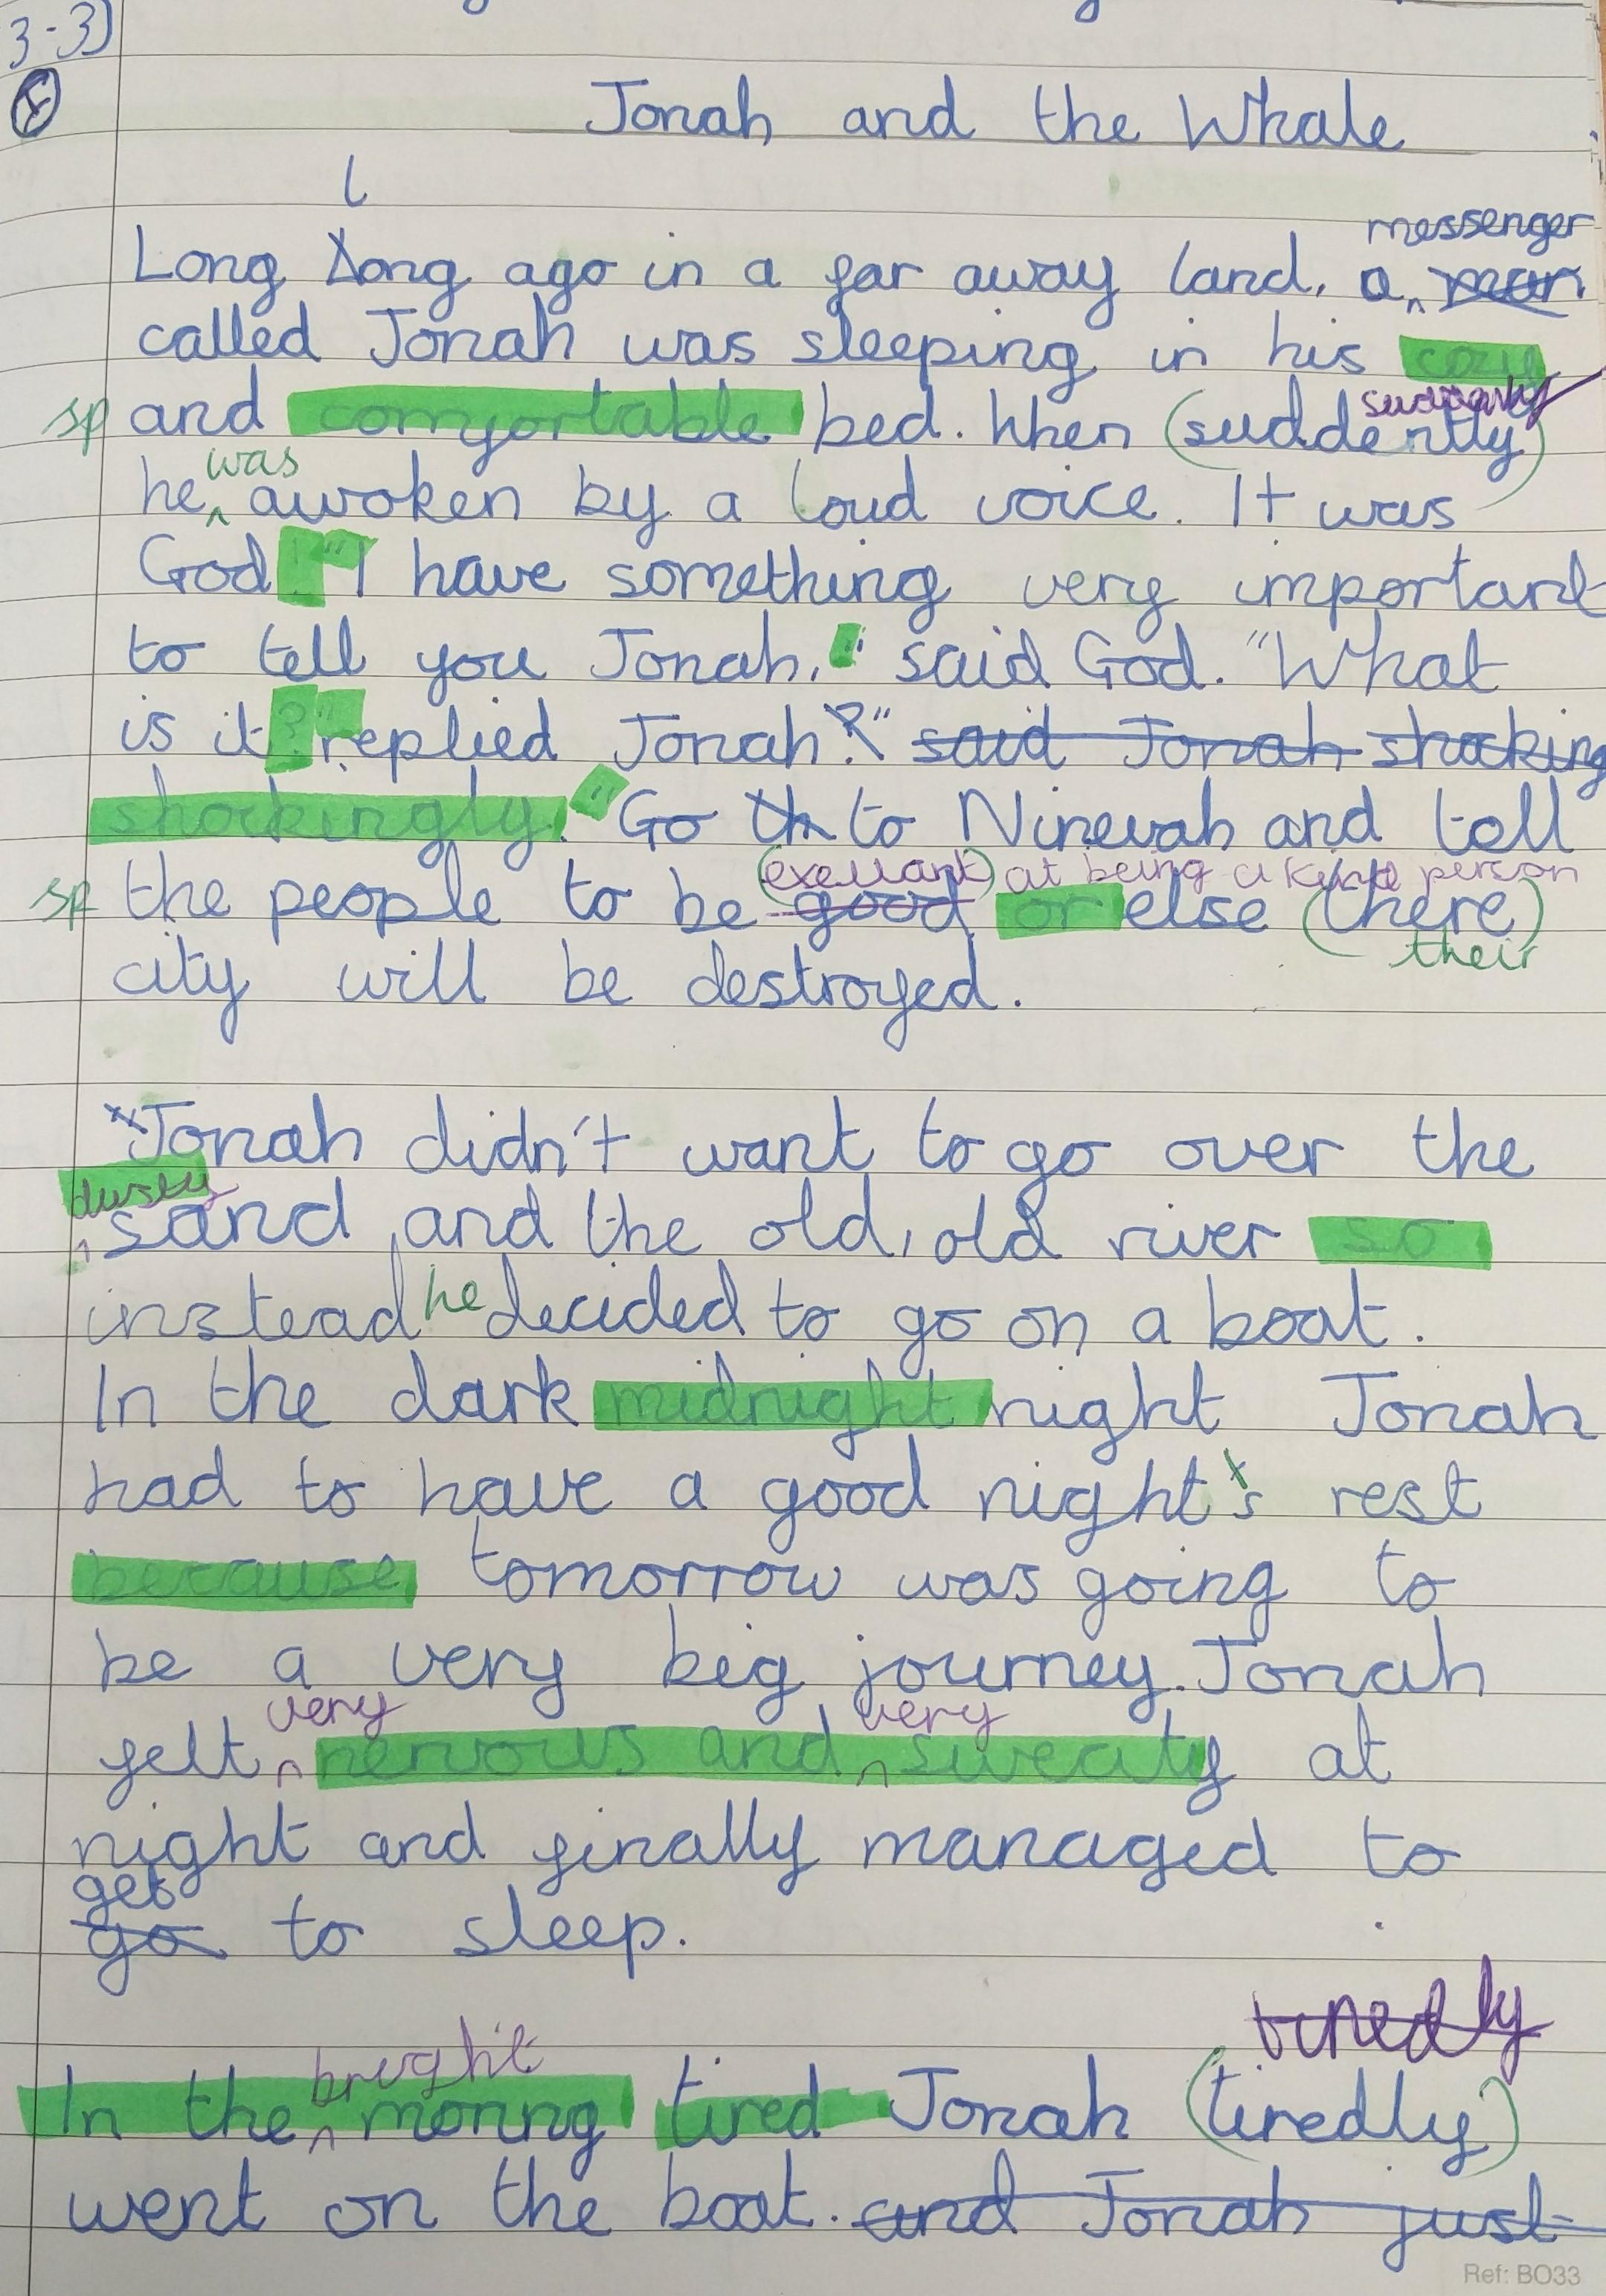 3.3)
I
Jonah and the Whale
l
messenger
Long long ago in a far away land, a man
called Jonah was sleeping in his cozy
suddenly
sp and comfortable bed. When (suddently)
was
he awoken by a loud voice. It was
God! "I have something very important
to tell you Jonah," said God. "What
is it?" replied Jonah?" said Jonah shocking
shockingly. "Go th to Ninevah and tell
(exellant) at being a kind person
sp the people to be good or else (there)
their
city will be destroyed.
"Jonah didn't want to go over the
dusty
sand and the old, old river so
instead he decided to go on a boat.
In the dark midnight night Jonah
had to have a good night's rest
because tomorrow was going to
be a very big journey. Jonah
very very
felt nervous and sweaty at
night and finally managed to
get
go to sleep.
tiredly
bright
In the morinng tired Jonah (tiredly)
went on the boat. and Jonah just
Ref: BO33